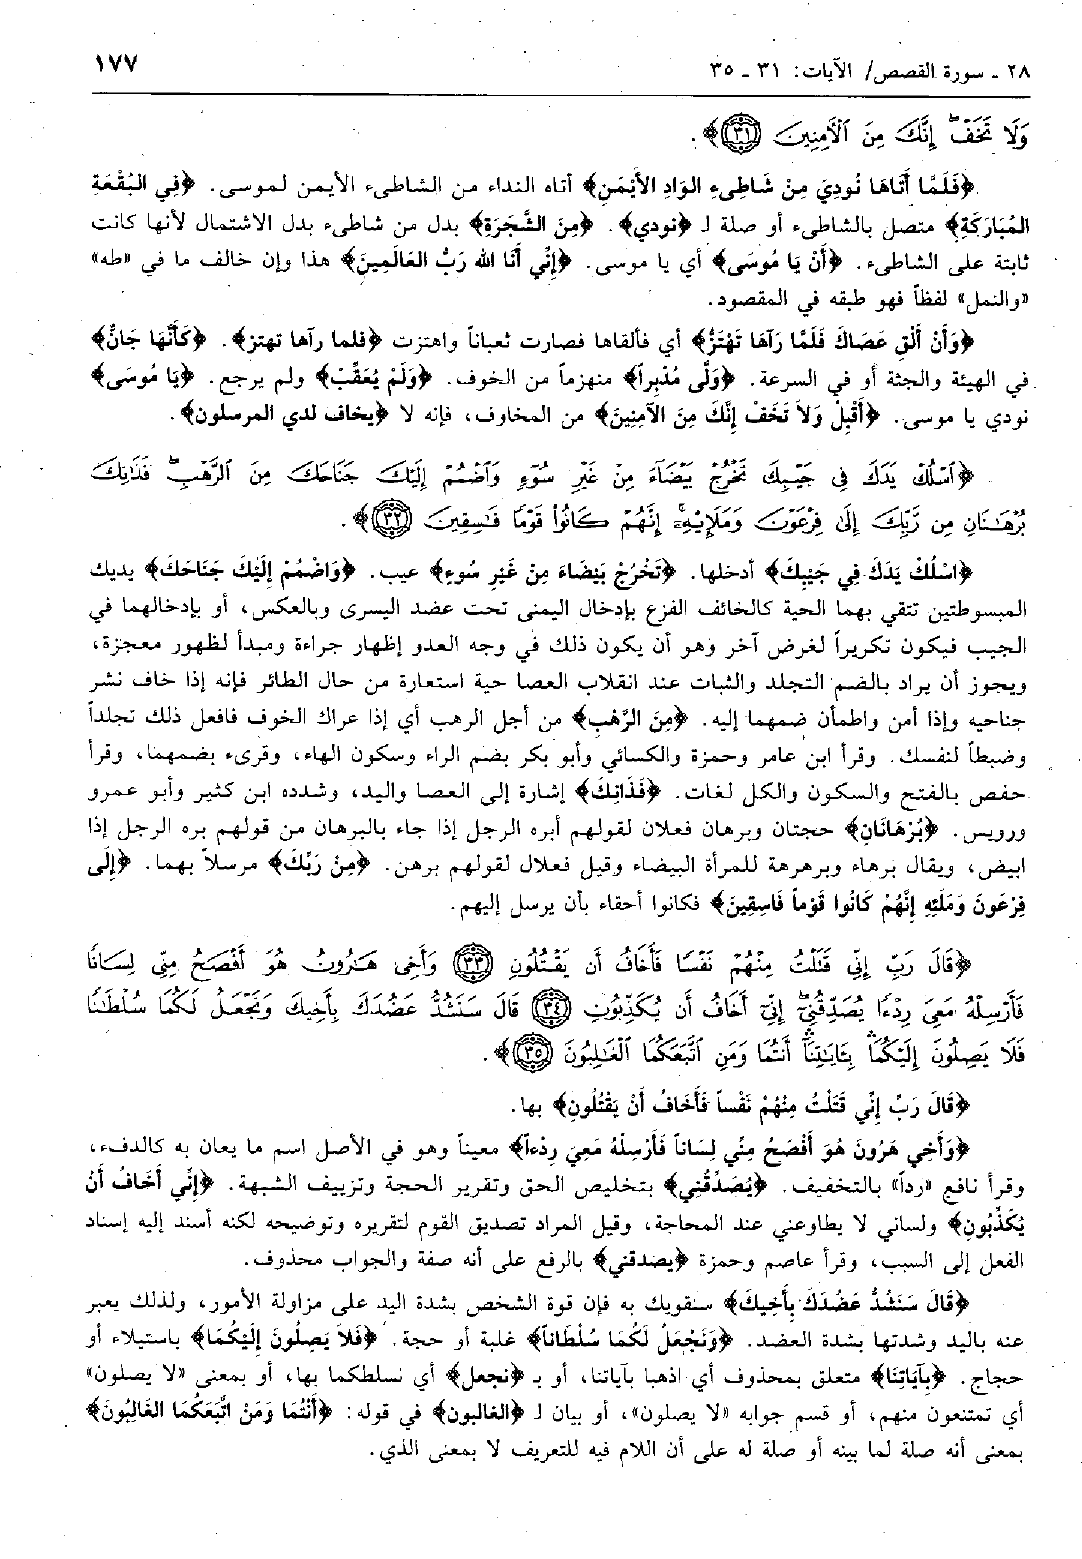 ٢٨ - سورة القصص/ الآيات: ٣١ - ٣٥
١٧٧
وَلَا تَخَفْ إِنَّكَ مِنَ ٱلْأَمِنِينَ ﴿٣١﴾﴾.
﴿فَلَمَّا أَتَاهَا نُودِيَ مِنْ شَاطِىءِ الوَادِ الأَيْمَنِ﴾ أتاه النداء من الشاطىء الأيمن لموسى. ﴿فِي البُقْعَةِ
المُبَارَكَةِ﴾ متصل بالشاطىء أو صلة لـ ﴿نودي﴾. ﴿مِنَ الشَّجَرَةِ﴾ بدل من شاطىء بدل الاشتمال لأنها كانت
ثابتة على الشاطىء. ﴿أَنْ يَا مُوسَى﴾ أي يا موسى. ﴿إِنِّي أَنَا الله رَبُّ العَالَمِينَ﴾ هذا وإن خالف ما في «طه»
«والنمل» لفظاً فهو طبقه في المقصود.
﴿وَأَنْ أَلْقِ عَصَاكَ فَلَمَّا رَآهَا تَهْتَزُّ﴾ أي فألقاها فصارت ثعباناً واهتزت ﴿فلما رآها تهتز﴾. ﴿كَأَنَّهَا جَانٌّ﴾
في الهيئة والجثة أو في السرعة. ﴿وَلَّى مُدْبِراً﴾ منهزماً من الخوف. ﴿وَلَمْ يُعَقِّبْ﴾ ولم يرجع. ﴿يَا مُوسَى﴾
نودي يا موسى. ﴿أَقْبِلْ وَلاَ تَخَفْ إِنَّكَ مِنَ الآمِنِينَ﴾ من المخاوف، فإنه لا ﴿يخاف لدي المرسلون﴾.
﴿ٱسْلُكْ يَدَكَ فِي جَيْبِكَ تَخْرُجْ بَيْضَآءَ مِنْ غَيْرِ سُوٓءٍ وَٱضْمُمْ إِلَيْكَ جَنَاحَكَ مِنَ ٱلرَّهْبِ فَذَٰنِكَ
بُرْهَـٰنَانِ مِن رَّبِّكَ إِلَىٰ فِرْعَوْنَ وَمَلَإِيْهِۦٓ إِنَّهُمْ كَانُوا۟ قَوْمًا فَـٰسِقِينَ ﴿٣٢﴾﴾.
﴿اسْلُكْ يَدَكَ فِي جَيْبِكَ﴾ أدخلها. ﴿تَخْرُجْ بَيْضَاءَ مِنْ غَيْرِ سُوءٍ﴾ عيب. ﴿وَاضْمُمْ إِلَيْكَ جَنَاحَكَ﴾ يديك
المبسوطتين تتقي بهما الحية كالخائف الفزع بإدخال اليمنى تحت عضد اليسرى وبالعكس، أو بإدخالهما في
الجيب فيكون تكريراً لغرض آخر وهو أن يكون ذلك في وجه العدو إظهار جراءة ومبدأ لظهور معجزة،
ويجوز أن يراد بالضم التجلد والثبات عند انقلاب العصا حية استعارة من حال الطائر فإنه إذا خاف نشر
جناحيه وإذا أمن واطمأن ضمهما إليه. ﴿مِنَ الرَّهْبِ﴾ من أجل الرهب أي إذا عراك الخوف فافعل ذلك تجلداً
وضبطاً لنفسك. وقرأ ابن عامر وحمزة والكسائي وأبو بكر بضم الراء وسكون الهاء، وقرىء بضمهما، وقرأ
حفص بالفتح والسكون والكل لغات. ﴿فَذَانِكَ﴾ إشارة إلى العصا واليد، وشدده ابن كثير وأبو عمرو
ورويس. ﴿بُرْهَانَانِ﴾ حجتان وبرهان فعلان لقولهم أبره الرجل إذا جاء بالبرهان من قولهم بره الرجل إذا
ابيض، ويقال برهاء وبرهرهة للمرأة البيضاء وقيل فعلال لقولهم برهن. ﴿مِنْ رَبِّكَ﴾ مرسلاً بهما. ﴿إِلَى
فِرْعَونَ وَمَلَئِهِ إِنَّهُمْ كَانُوا قَوْماً فَاسِقِينَ﴾ فكانوا أحقاء بأن يرسل إليهم.
﴿قَالَ رَبِّ إِنِّي قَتَلْتُ مِنْهُمْ نَفْسًا فَأَخَافُ أَن يَقْتُلُونِ ﴿٣٣﴾ وَأَخِى هَـٰرُونُ هُوَ أَفْصَحُ مِنِّى لِسَانًا
فَأَرْسِلْهُ مَعِىَ رِدْءًا يُصَدِّقُنِىٓ إِنِّىٓ أَخَافُ أَن يُكَذِّبُونِ ﴿٣٤﴾ قَالَ سَنَشُدُّ عَضُدَكَ بِأَخِيكَ وَنَجْعَلُ لَكُمَا سُلْطَـٰنًا
فَلَا يَصِلُونَ إِلَيْكُمَا بِـَٔايَـٰتِنَآ أَنتُمَا وَمَنِ ٱتَّبَعَكُمَا ٱلْغَـٰلِبُونَ ﴿٣٥﴾﴾.
﴿قَالَ رَبِّ إِنِّي قَتَلْتُ مِنْهُمْ نَفْساً فَأَخَافُ أَنْ يَقْتُلُونِ﴾ بها.
﴿وَأَخِي هَرُونَ هُوَ أَفْصَحُ مِنِّي لِسَاناً فَأَرْسِلْهُ مَعِيَ رِدْءاً﴾ معيناً وهو في الأصل اسم ما يعان به كالدفء،
وقرأ نافع «رداً» بالتخفيف. ﴿يُصَدِّقُنِي﴾ بتخليص الحق وتقرير الحجة وتزييف الشبهة. ﴿إِنِّي أَخَافُ أَنْ
يُكَذِّبُونِ﴾ ولساني لا يطاوعني عند المحاجة، وقيل المراد تصديق القوم لتقريره وتوضيحه لكنه أسند إليه إسناد
الفعل إلى السبب، وقرأ عاصم وحمزة ﴿يصدقني﴾ بالرفع على أنه صفة والجواب محذوف.
﴿قَالَ سَنَشُدُّ عَضُدَكَ بِأَخِيكَ﴾ سنقويك به فإن قوة الشخص بشدة اليد على مزاولة الأمور، ولذلك يعبر
عنه باليد وشدتها بشدة العضد. ﴿وَنَجْعَلُ لَكُمَا سُلْطَاناً﴾ غلبة أو حجة. ﴿فَلاَ يَصِلُونَ إِلَيْكُمَا﴾ باستيلاء أو
حجاج. ﴿بِآيَاتِنَا﴾ متعلق بمحذوف أي اذهبا بآياتنا، أو بـ ﴿نجعل﴾ أي نسلطكما بها، أو بمعنى «لا يصلون»
أي تمتنعون منهم، أو قسم جوابه «لا يصلون»، أو بيان لـ ﴿الغالبون﴾ في قوله: ﴿أَنْتُمَا وَمَنِ اتَّبَعَكُمَا الغَالِبُونَ﴾
بمعنى أنه صلة لما بينه أو صلة له على أن اللام فيه للتعريف لا بمعنى الذي.